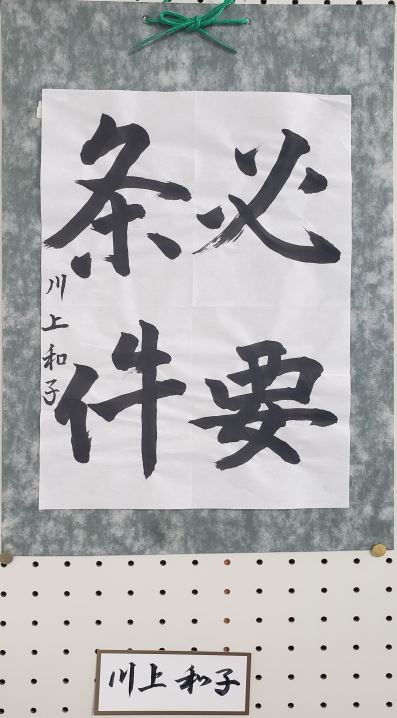 必要
条件
川上和子
川上和子